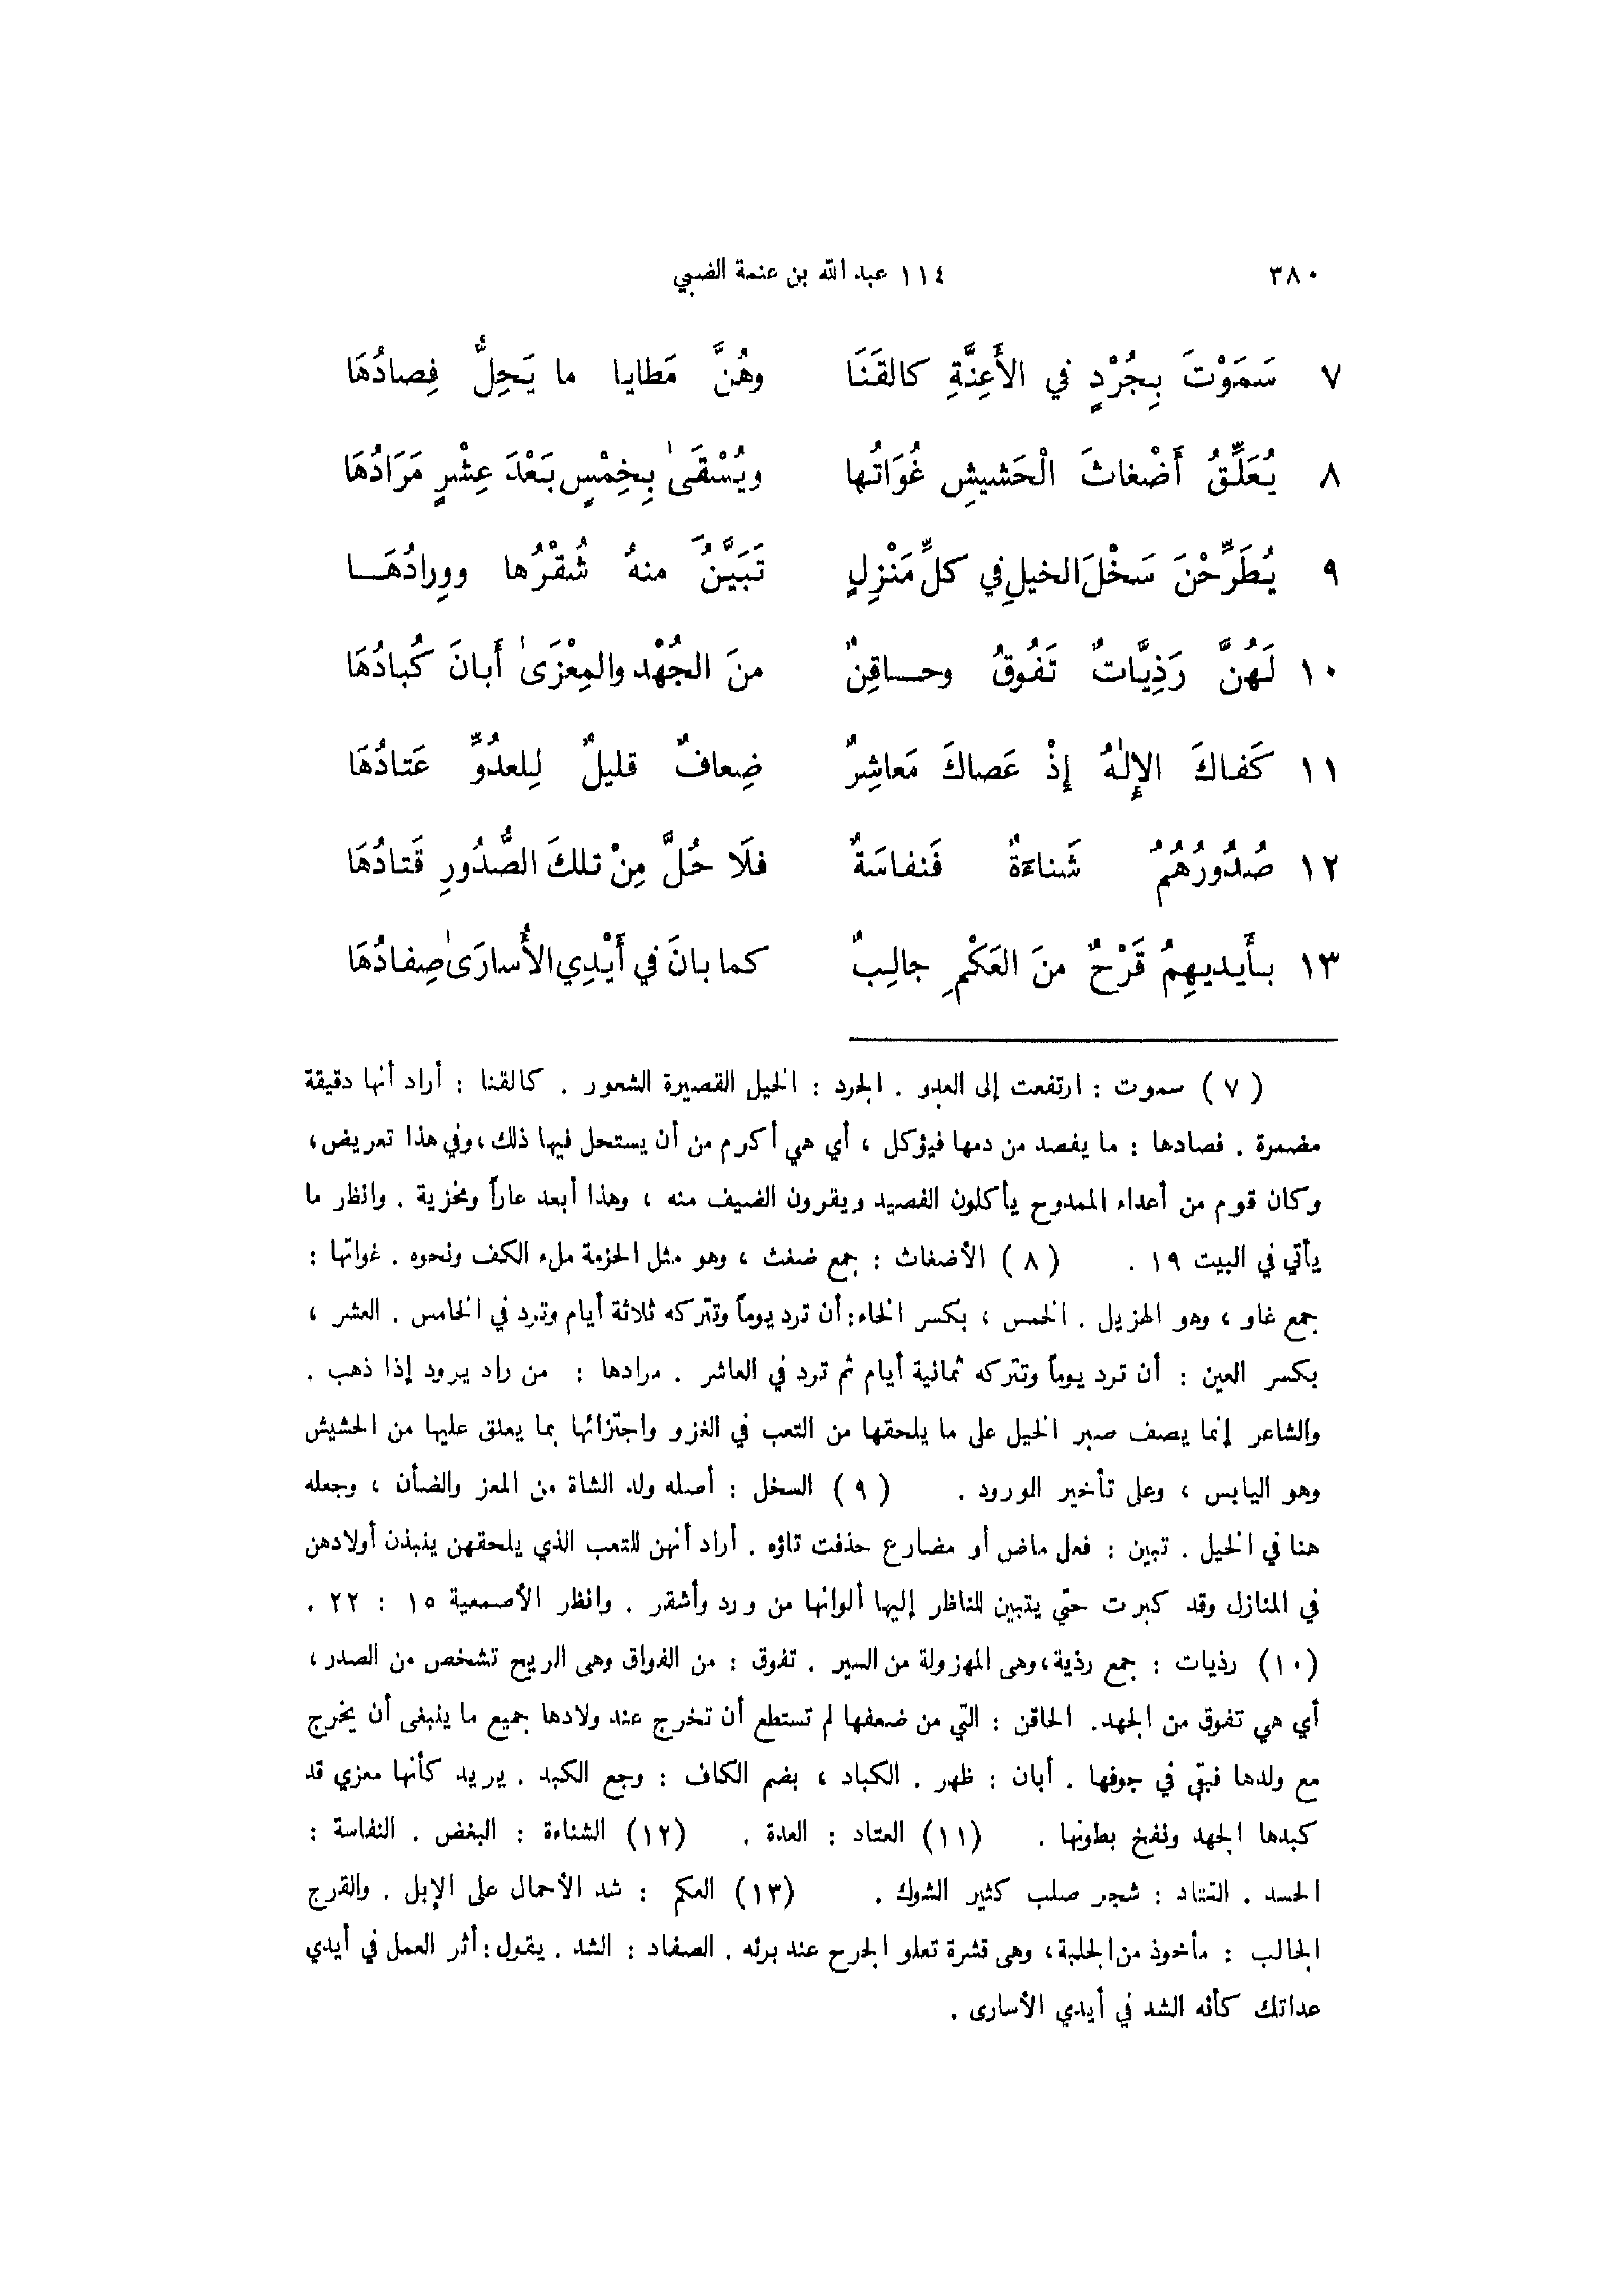 ٣٨٠ ١١٤ عبد الله بن عنمة الضبي
٧ سَمَوْتَ بِجُرْدٍ في الأَعِنَّةِ كالقَنَا وهُنَّ مَطايا ما يَحِلُّ فِصادُهَا
٨ يُعَلِّقُ أَضْغاثَ الْحَشيشِ غُوَاتُها ويُسْقَىٰ بِخِمْسٍ بَعْدَ عِشْرٍ مَرَادُهَا
٩ يُطَرِّحْنَ سَخْلَ الخيلِ في كلِّ مَنْزِلٍ تَبَيَّنَُ منهُ شُقْرُها ووِرادُهَا
١٠ لَهُنَّ رَذِيَّاتٌ تَفُوقُ وحاقِنٌ منَ الجُهْد والمِعْزَىٰ أَبانَ كُبادُهَا
١١ كَفاكَ الإِلٰهُ إِذْ عَصاكَ مَعاشِرٌ ضِعافٌ قليلٌ لِلعدُوِّ عَتادُهَا
١٢ صُدُورُهُمُ شَناءَةٌ فَنفاسَةٌ فلَا حُلَّ مِنْ تلكَ الصُّدُورِ قَتادُهَا
١٣ بأَيديهِمُ قَرْحٌ منَ العَكْمِ جالِبٌ كما بانَ في أَيْدِي الأُسارَىٰ صِفادُهَا
(٧) سموت : ارتفعت إلى العدو . الجرد : الخيل القصيرة الشعور . كالقنا : أراد أنها دقيقة
مضمرة . فصادها : ما يفصد من دمها فيؤكل ، أي هي أكرم من أن يستحل فيها ذلك ، وفي هذا تعريض ،
وكان قوم من أعداء الممدوح يأكلون الفصيد ويقرون الضيف منه ، وهذا أبعد عاراً ومخزية . وانظر ما
يأتي في البيت ١٩ . (٨) الأضغاث : جمع ضغث ، وهو مثل الحزمة ملء الكف ونحوه . غواتها :
جمع غاو ، وهو الهزيل . الخمس ، بكسر الخاء : أن ترد يوماً وتتركه ثلاثة أيام وترد في الخامس . العشر ،
بكسر العين : أن ترد يوماً وتتركه ثمانية أيام ثم ترد في العاشر . مرادها : من راد يرود إذا ذهب .
والشاعر إنما يصف صبر الخيل على ما يلحقها من التعب في الغزو واجتزائها بما يعلق عليها من الحشيش
وهو اليابس ، وعلى تأخير الورود . (٩) السخل : أصله ولد الشاة من المعز والضأن ، وجعله
هنا في الخيل . تبين : فعل ماض أو مضارع حذفت تاؤه . أراد أنهن للتعب الذي يلحقهن ينبذن أولادهن
في المنازل وقد كبرت حتى يتبين للناظر إليها ألوانها من ورد وأشقر . وانظر الأصمعية ١٥ : ٢٢ .
(١٠) رذيات : جمع رذية ، وهى المهزولة من السير . تفوق : من الفواق وهى الريح تشخص من الصدر ،
أي هي تفوق من الجهد . الحاقن : التي من ضعفها لم تستطع أن تخرج عند ولادها جميع ما ينبغى أن يخرج
مع ولدها فبقى في جوفها . أبان : ظهر . الكباد ، بضم الكاف : وجع الكبد . يريد كأنها معزي قد
كبدها الجهد ونفخ بطونها . (١١) العتاد : العدة . (١٢) الشناءة : البغض . النفاسة :
الحسد . القتاد : شجر صلب كثير الشوك . (١٣) العكم : شد الأحمال على الإبل . والقرح
الجالب : مأخوذ من الجلبة ، وهى قشرة تعلو الجرح عند برئه . الصفاد : الشد . يقول : أثر العمل في أيدي
عداتك كأنه الشد في أيدي الأسارى .